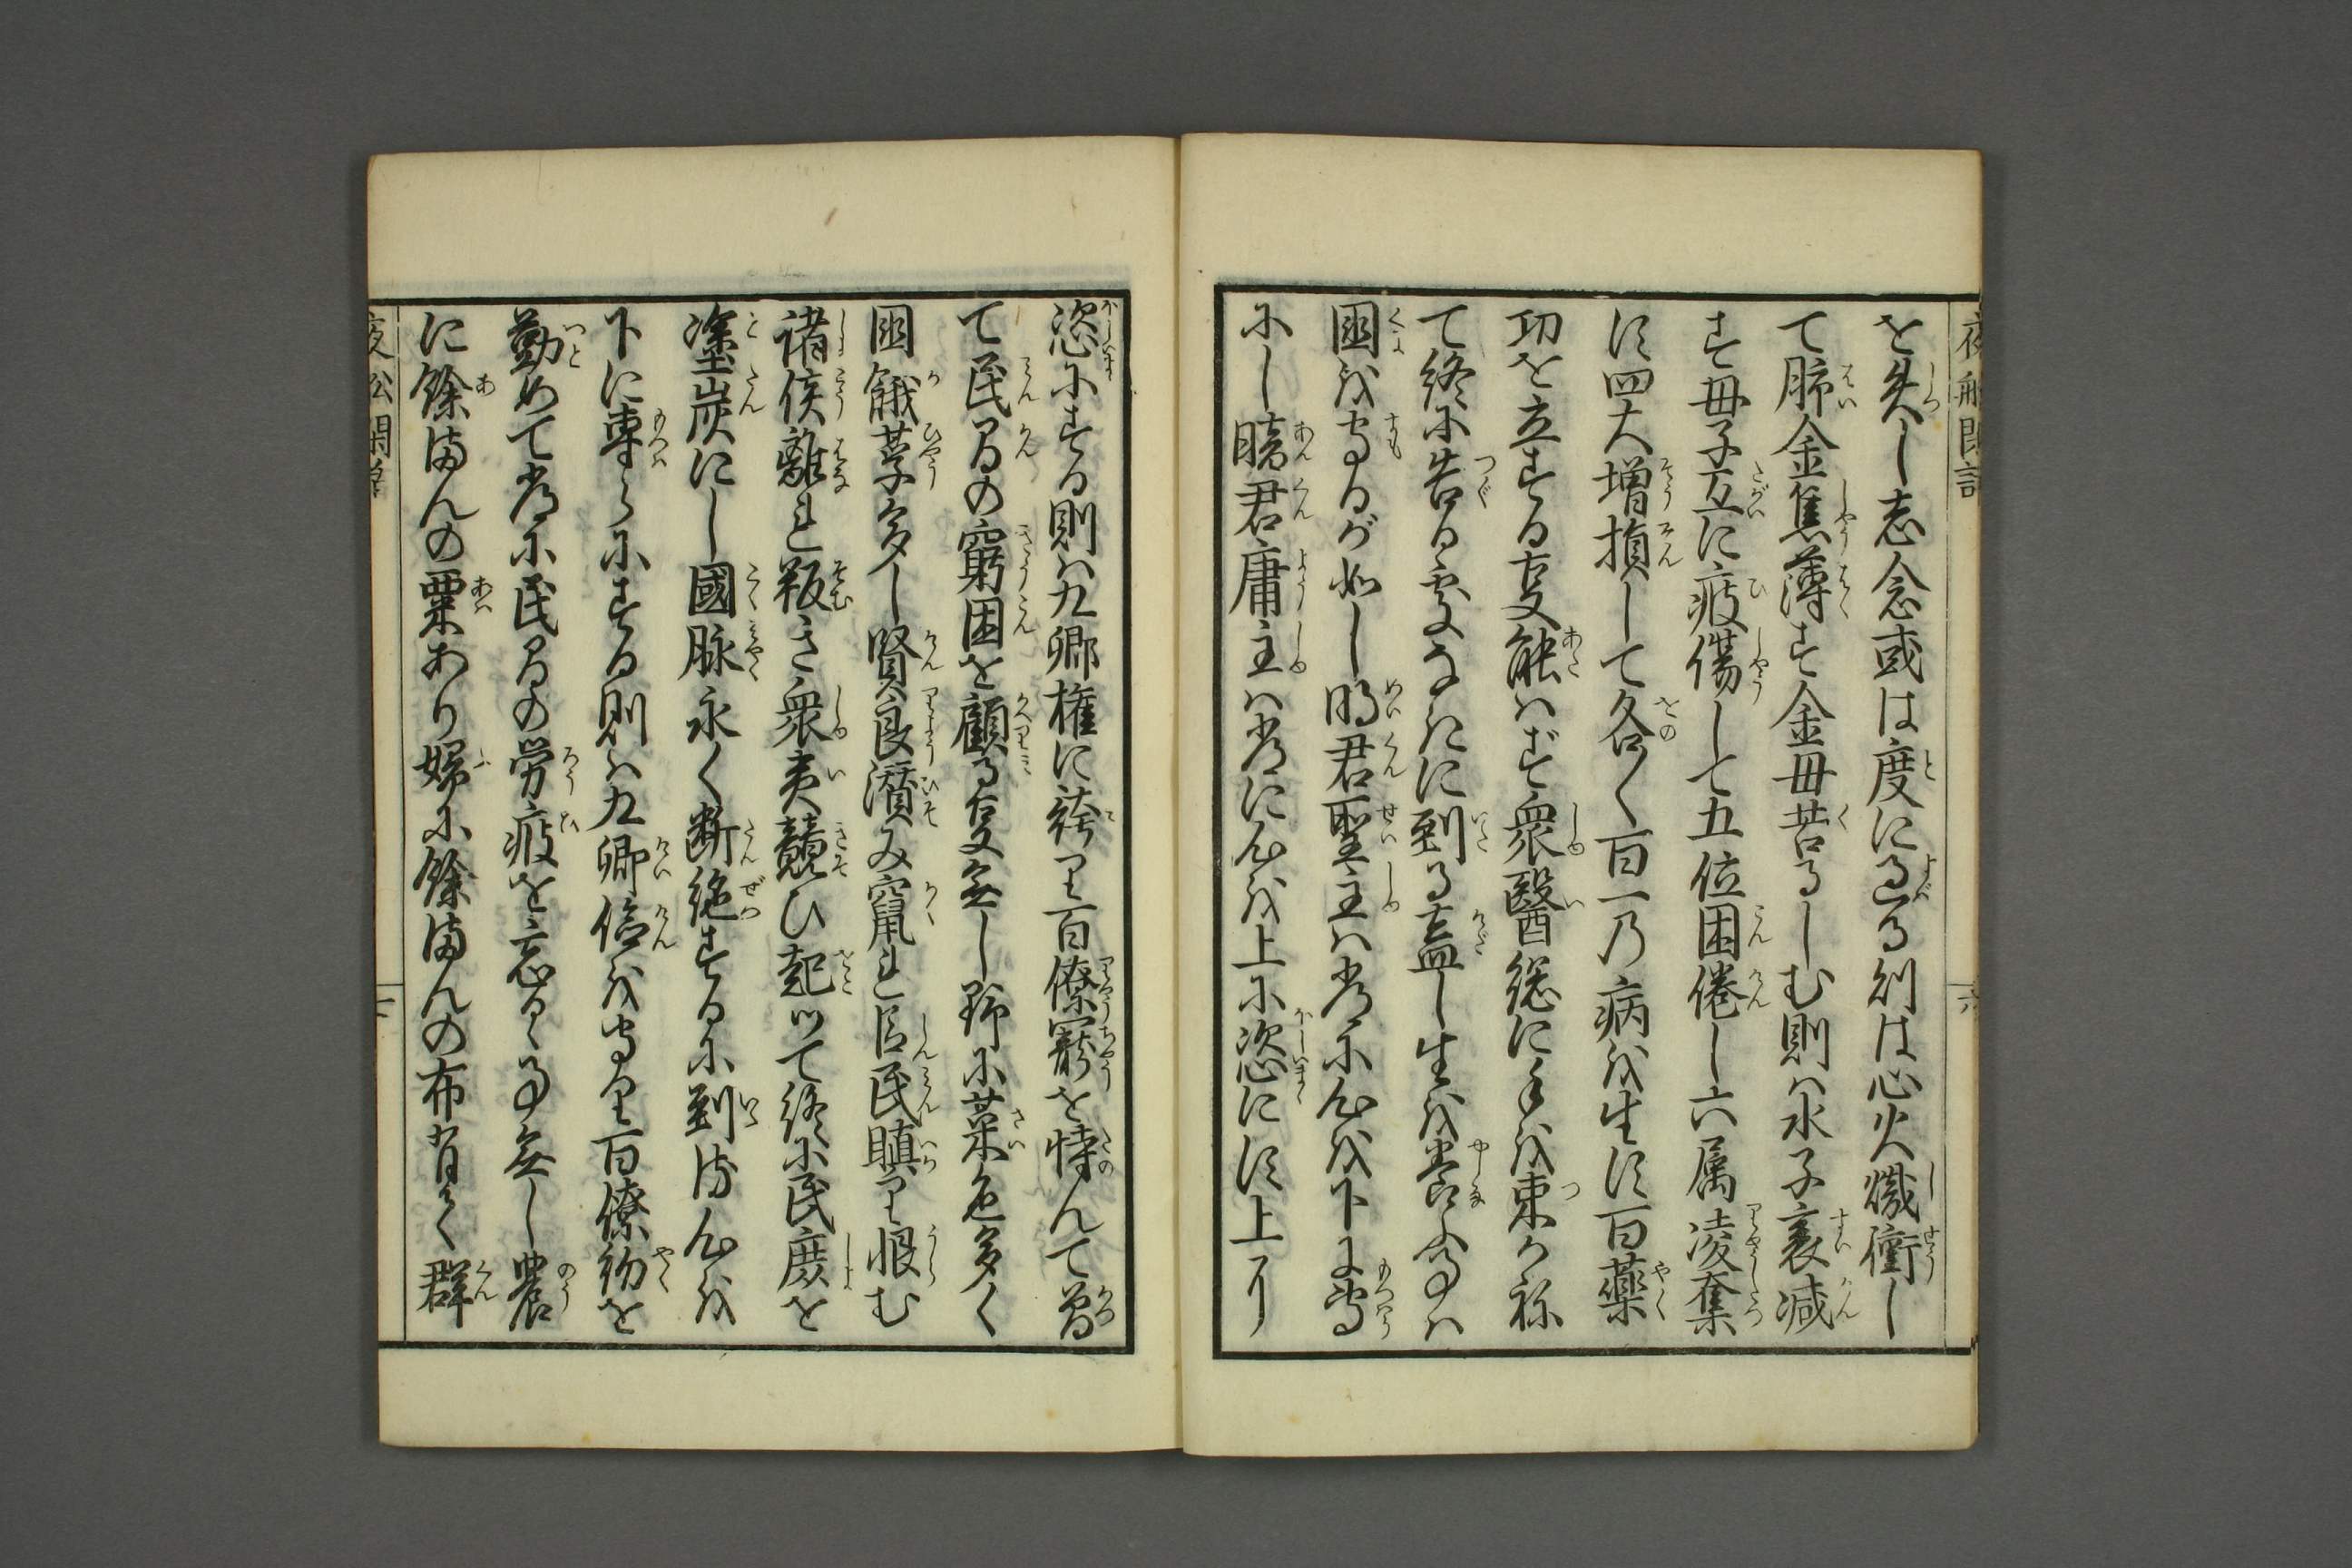 夜船閑話
六
を失し志念或は度に過る則は心火熾衝し
て肺金焦薄す金母苦るしむ則ハ水子衰減
す母子互に疲傷して五位困倦し六属凌奪
に四大増損して各〻百一乃病を生に百薬
功を立する事能ハず衆醫総に手を束かね
て終に告る處なきに到る蓋し生を養ふ事ハ
國を守るが如し明君聖主ハ常に心を下に専
にし暗君庸主ハ常に心を上に恣にに上ミ
恣にする則ハ九卿権に誇り百僚寵を恃んて曾
て民間の窮困を顧る事無し野に菜色多く
國餓莩多し賢良潜み竄れ臣民瞋り恨む
諸侯離れ叛き衆夷競ひ起ツて終に民庶を
塗炭にし國脉永く断絶するに到る心を
下に専らにする則ハ九卿倹を守り百僚約を
勤めて常に民間の労疲を忘るゝ事無し農
に餘まんの粟あり婦に餘まんの布有て群
夜船閑話